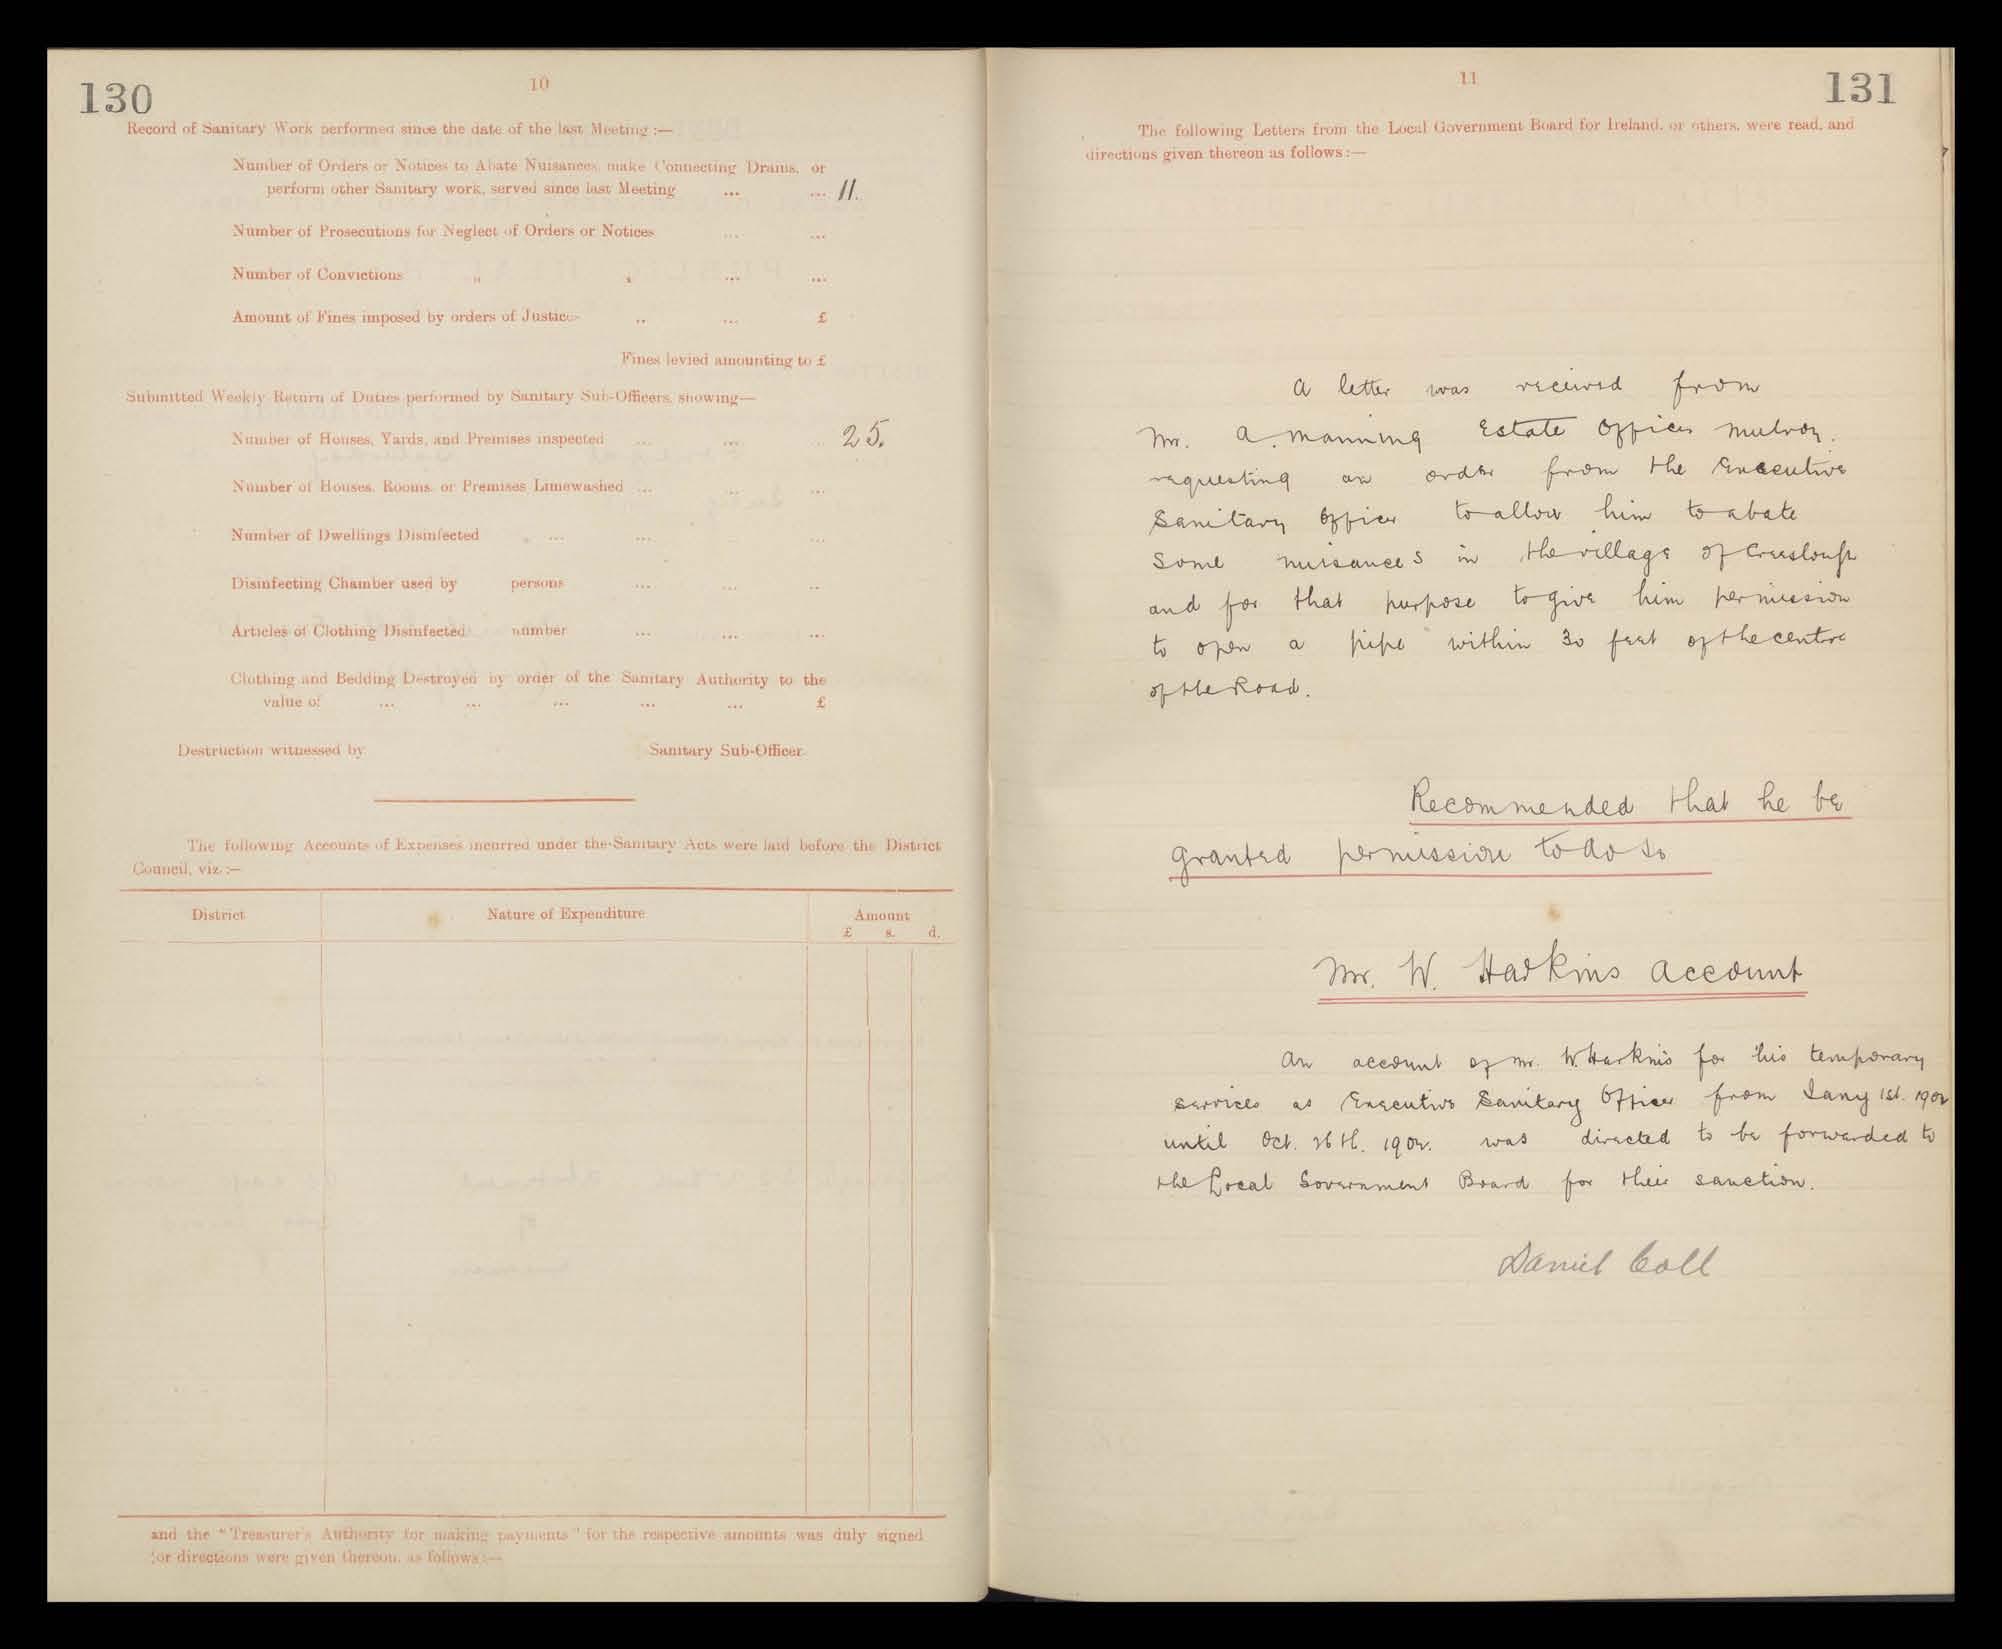 130
10
Record of Sanitary Work performed since the date of the last Meeting :—
Number of Orders or Notices to Abate Nuisances, make Connecting Drains, or
perform other Sanitary work, served since last Meeting ... ... 11.
Number of Prosecutions for Neglect of Orders or Notices ... ...
Number of Convictions „ „ ... ...
Amount of Fines imposed by orders of Justices ... ... £
Fines levied amounting to £
Submitted Weekly Return of Duties performed by Sanitary Sub-Officers, showing—
Number of Houses, Yards, and Premises inspected ... ... ... 25.
Number of Houses, Rooms, or Premises Limewashed ... ... ...
Number of Dwellings Disinfected ... ... ...
Disinfecting Chamber used by persons ... ... ...
Articles of Clothing Disinfected number ... ... ...
Clothing and Bedding Destroyed by order of the Sanitary Authority to the
value of ... ... ... ... ... £
Destruction witnessed by Sanitary Sub-Officer.
The following Accounts of Expenses incurred under the Sanitary Acts were laid before the District
Council, viz :—
District Nature of Expenditure Amount
£ s. d.
and the "Treasurer's Authority for making payments" for the respective amounts was duly signed
for directions were given thereon, as follows :—
11
131
The following Letters from the Local Government Board for Ireland, or others, were read, and
directions given thereon as follows :—
A letter was received from
Mr. A. Manning Estate Office Mulroy.
requesting an order from the Executive
Sanitary Officer to allow him to abate
Some nuisances in the village of Creeslough
and for that purpose to give him permission
to open a pipe within 30 feet of the centre
of the Road.
Recommended that he be
granted permission to do so
Mr. W. Harkins account
An account of Mr. W. Harkins for his temporary
services as Executive Sanitary Officer from Jany 1st. 1902
until Oct. 26th. 1902. was directed to be forwarded to
the Local Government Board for their sanction.
Daniel Coll